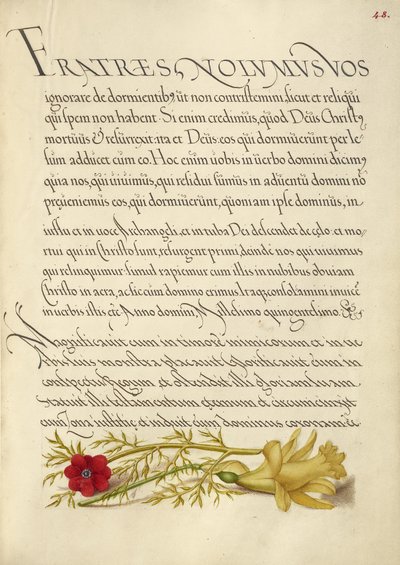 48.
FRATRES, NOLUMUS VOS
ignorare de dormientibꝰ, ut non contristemini, sicut et reliqui
qui spem non habent. Si enim credimus, quod Deus Christꝰ
mortuus & resurrexit: ita et Deus eos qui dormierunt per Ie-
sum adducet cum eo. Hoc enim uobis in uerbo domini dicimꝰ
quia nos, qui uiuimus, qui residui sumus in aduentu domini nō
præueniemus eos, qui dormierunt, quoniam ipse dominus, in
iussu et in uoce Archangeli, et in tuba Dei descendet de cęlo: et mor-
tui qui in Christo sunt, resurgent primi, deinde nos qui uiuimus
qui relinquimur simul rapiemur cum illis in nubibus obuiam
Christo in aera, ac sic cum domino erimus. Itaque consolamini inuicē
in uerbis istis etc̃. Anno domini, Millesimo quingentesimo.
Magnificauit eum in timore inimicorum et in uer
bis suis monstra placauit Glorificauit eum in
conspectu Regum et ostendit illi gloriam suam
statuit illi testamentum æternum et circumcinxit
eum Zona iustitiæ et induit eum dominus coronam